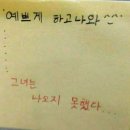 예쁘게 하고 나와 ^^
그녀는
나오지 못했다...